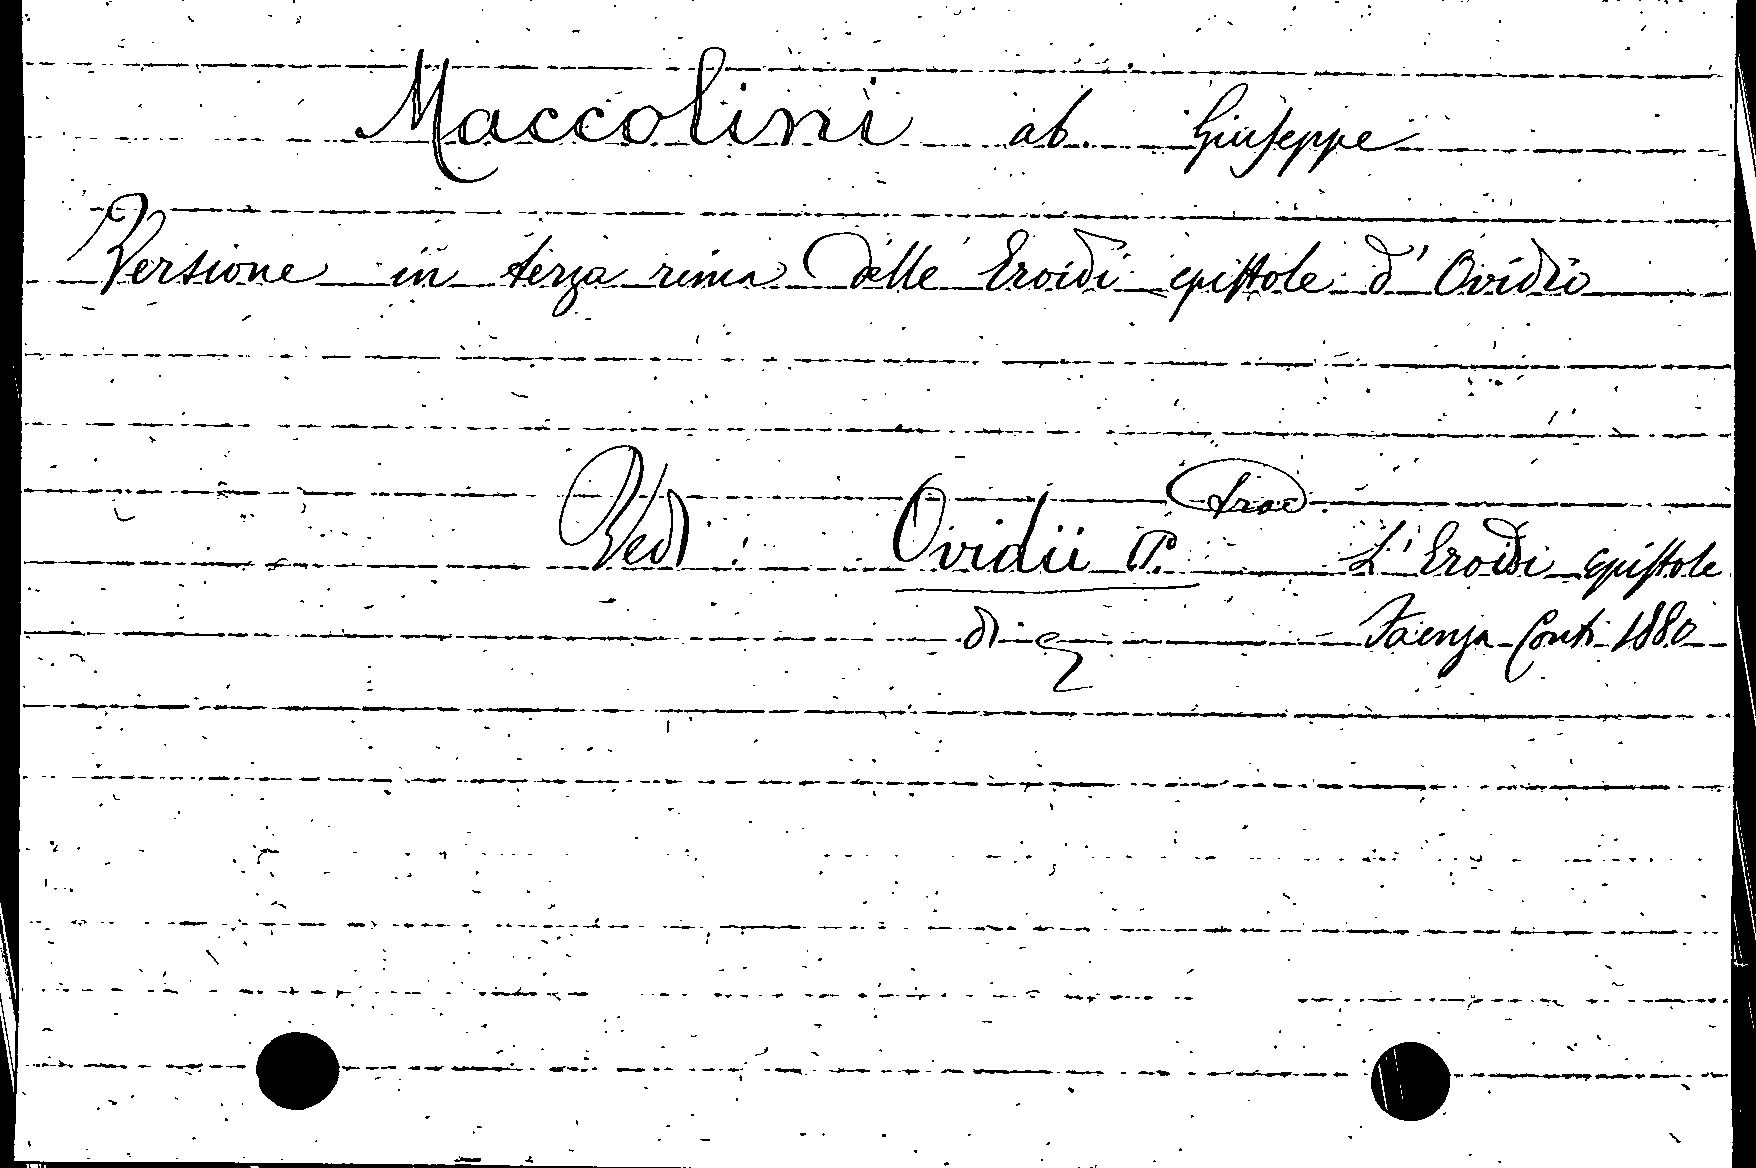 Maccolini ab. Giuseppe
Versione in terza rima delle Eroidi epistole d' Ovidio
trad.
Vedi: Ovidii P. L' Eroidi epistole
di Faenza Conti 1880